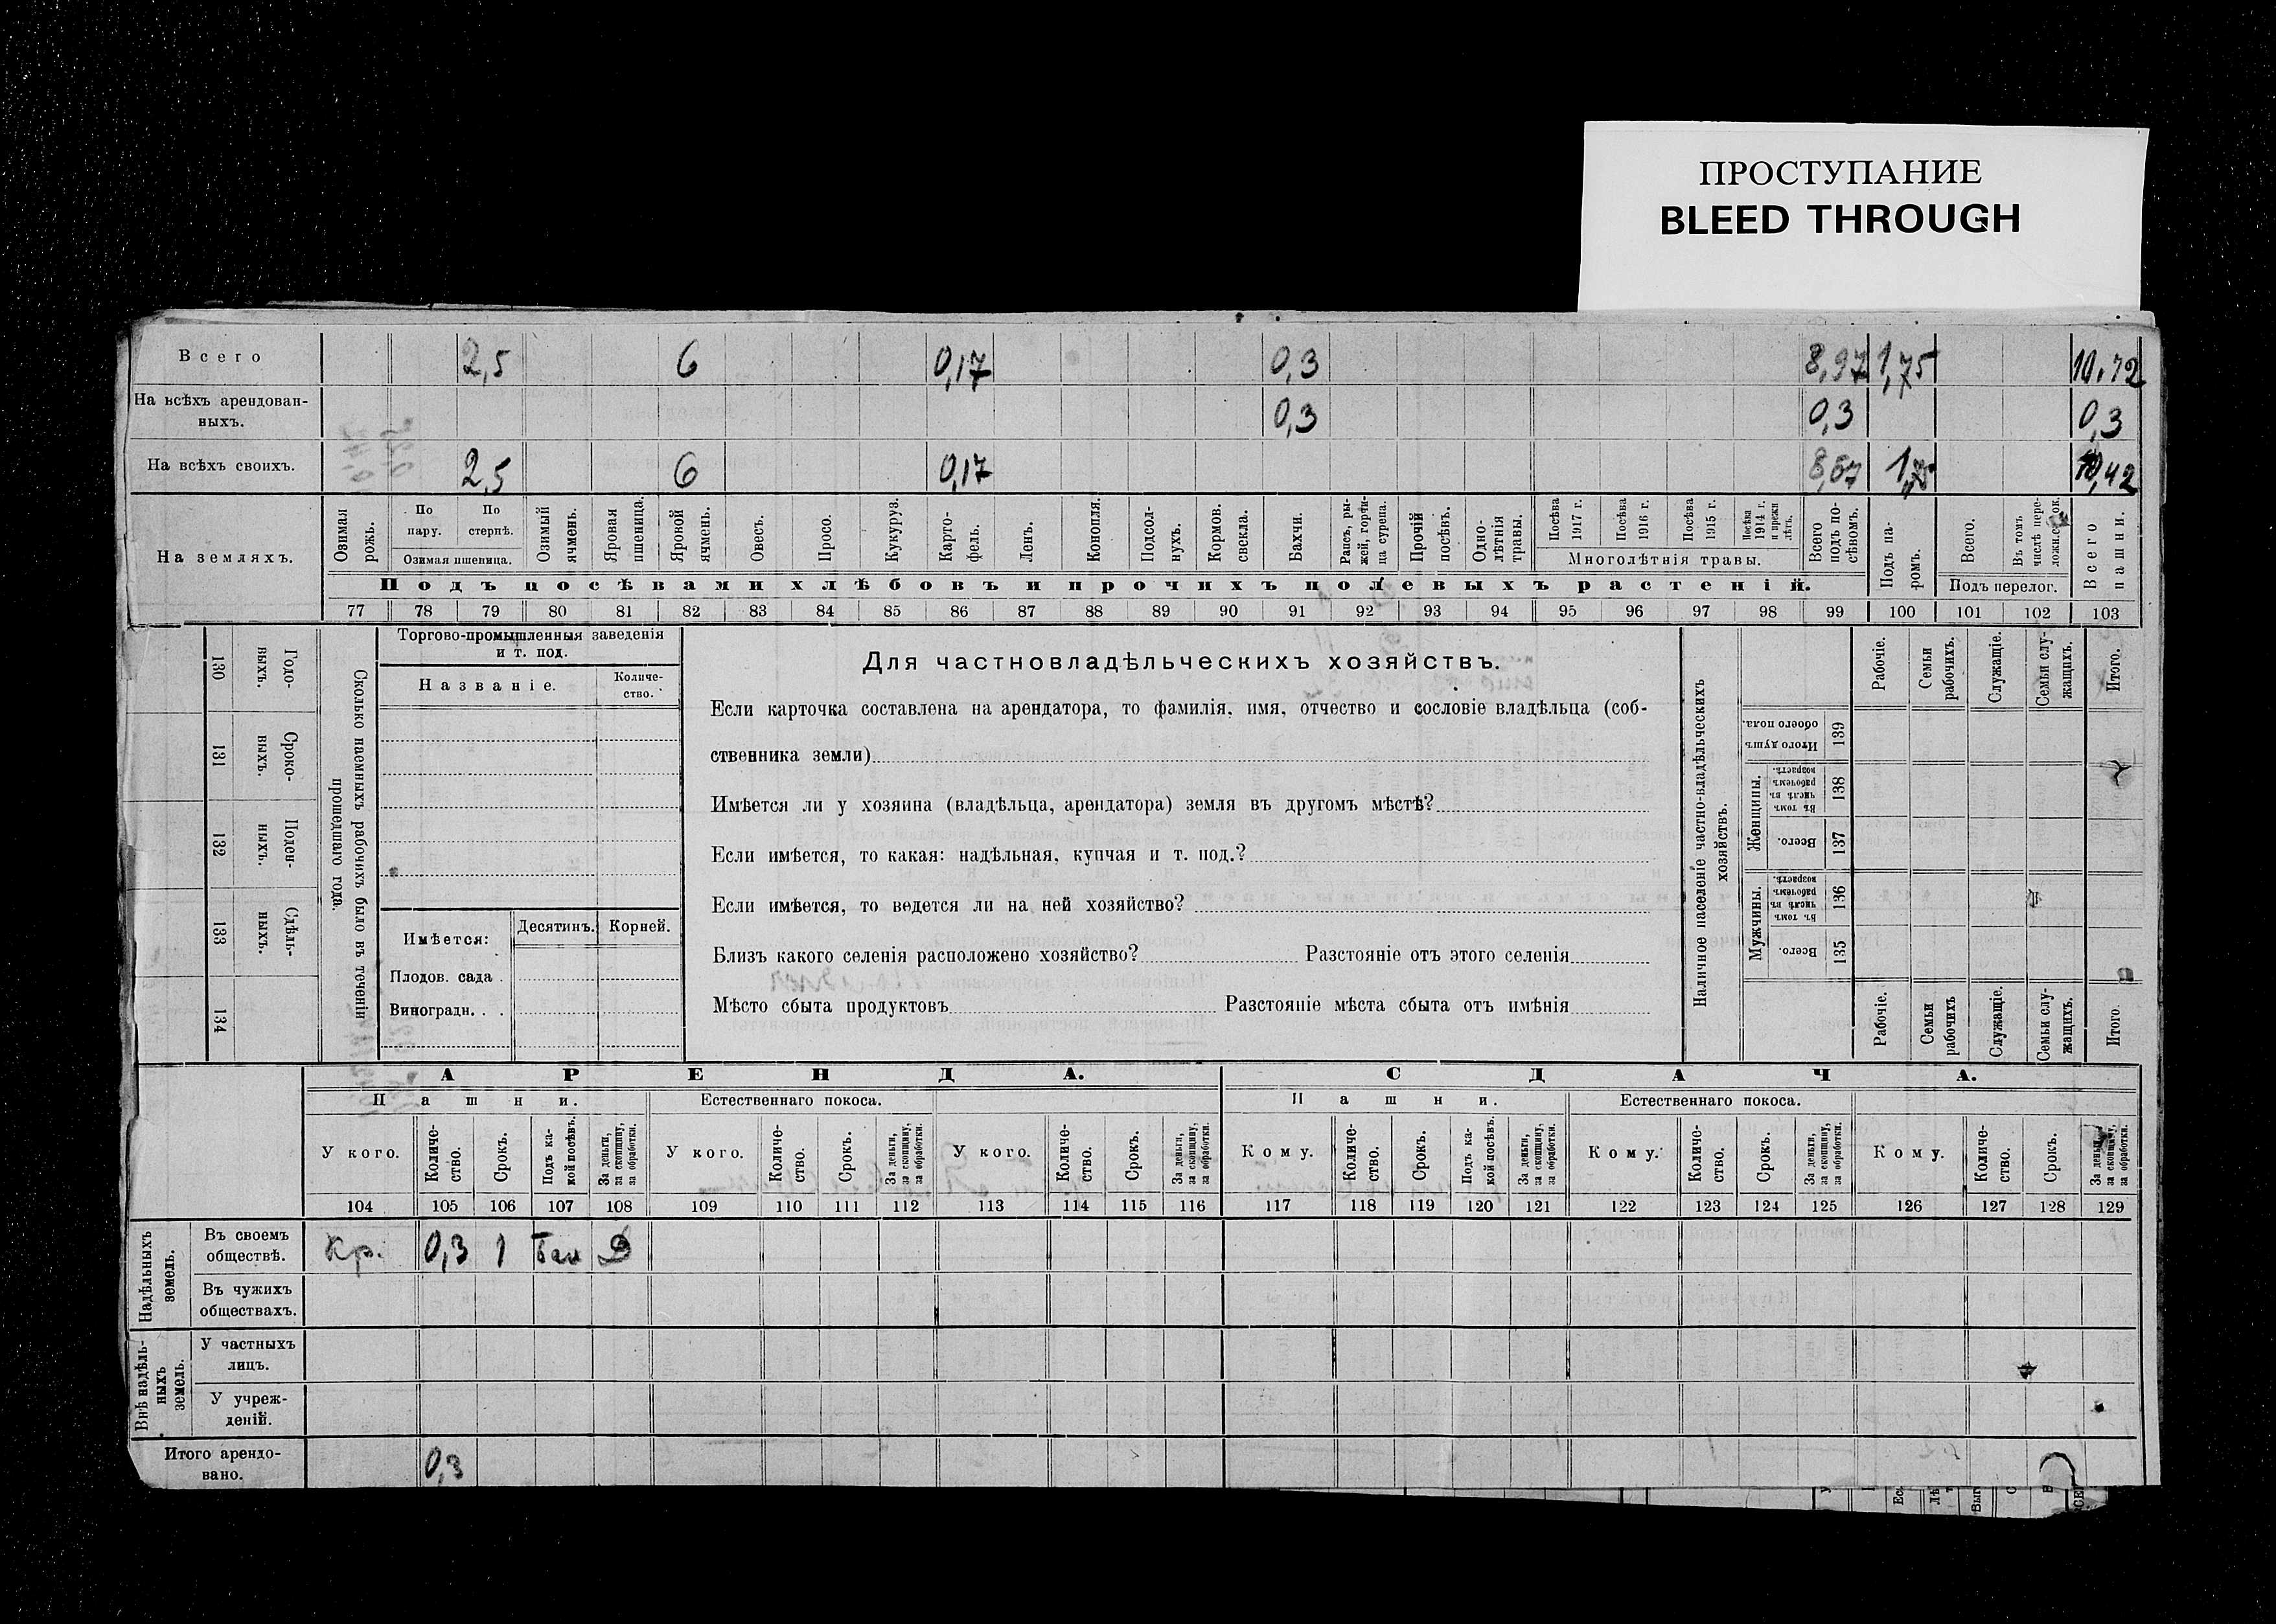 ПРОСТУПАНИЕ
BLEED THROUGH
Всего 2,5 6 0,17 0,3 8,97 1,75 10,72
На всѣхъ арендован-
ныхъ. 0,3 0,3 0,3
На всѣхъ своихъ. 2,5 6 0,17 8,67 1,75 10,42
На земляхъ.
Озимая рожь.
По пару.
По стернѣ.
Озимая пшеница.
Озимый ячмень.
Яровая пшеница.
Яровой ячмень.
Овесъ.
Просо.
Кукуруз.
Карто-
фель.
Ленъ.
Конопля.
Подсол-
нухъ.
Кормов. свекла.
Бахчи.
Рапсъ, ры-
жей, горчи-
ца сурепа.
Прочій посѣвъ.
Одно-
лѣтнія
травы.
Посѣва 1917 г.
Посѣва 1916 г.
Посѣва 1915 г.
Посѣва 1914 г. и прежн лѣтъ.
Многолѣтнія травы.
Всего подъ по-
сѣвомъ.
Подъ па-
ромъ.
Всего.
Въ томъ числѣ пере-
Подъ перелог.
Всего пашни.
Подъ посѣвами хлѣбовъ и прочихъ полевыхъ растеній.
77 78 79 80 81 82 83 84 85 86 87 88 89 90 91 92 93 94 95 96 97 98 99 100 101 102 103
130 Годо-
выхъ.
131 Сроко-
выхъ.
132 Поден-
ныхъ.
133 Сдѣль-
ныхъ.
134
Сколько наемныхъ рабочихъ было въ теченіи
прошедшаго года.
Торгово-промышленныя заведенія
и т. под.
Названіе.
Количе-
ство.
Имѣется:
Десятинъ. Корней.
Плодов. сада .
Виноградн. . .
Для частновладѣльческихъ хозяйствъ.
Если карточка составлена на арендатора, то фамилія, имя, отчество и сословіе владѣльца (соб-
ственника земли)
Имѣется ли у хозяина (владѣльца, арендатора) земля въ другомъ мѣстѣ?
Если имѣется, то какая: надѣльная, купчая и т. под.?
Если имѣется, то ведется ли на ней хозяйство?
Близъ какого селенія расположено хозяйство? Разстояніе отъ этого селенія
Мѣсто сбыта продуктовъ Разстояніе мѣста сбыта отъ имѣнія
Наличное населеніе частно-владѣльческихъ
хозяйствъ.
Рабочіе.
Семьи рабочихъ.
Служащіе.
Семьи слу-
жащихъ.
Итого.
Итого душъ обоего пола. 139
Женщины.
Въ томъ числѣ въ рабочемъ возрастѣ. 138
Всего. 137
Мужчины.
Въ томъ числѣ въ рабочемъ возрастѣ. 136
Всего. 135
Рабочіе.
Семьи рабочихъ
Служащіе.
Семьи слу-
жащихъ.
Итого.
АРЕНДА. СДАЧА.
Пашни. Естественнаго покоса. Пашни. Естественнаго покоса.
У кого.
Количе-
ство.
Срокъ.
Подъ ка-
кой посѣвъ.
За деньги,
за скопщину,
за обработки.
У кого.
Количе-
ство.
Срокъ.
За деньги,
за скопщину,
за обработки.
У кого.
Количе-
ство.
Срокъ.
За деньги,
за скопщину,
за обработки.
Кому.
Количе-
ство.
Срокъ.
Подъ ка-
кой посѣвъ.
За деньги,
за скопщину,
за обработки.
Кому.
Количе-
ство.
Срокъ.
За деньги,
за скопщину,
за обработки.
Кому.
Количе-
ство.
Срокъ.
За деньги,
за скопщину,
за обработки.
104 105 106 107 108 109 110 111 112 113 114 115 116 117 118 119 120 121 122 123 124 125 126 127 128 129
Надѣльныхъ
земель.
Въ своемъ
обществѣ. Кр. 0,3 1 Д
Въ чужихъ
обществахъ.
Внѣ надѣль-
ныхъ
земель.
У частныхъ
лицъ.
У учреж-
деній.
Итого арендо-
вано. 0,3